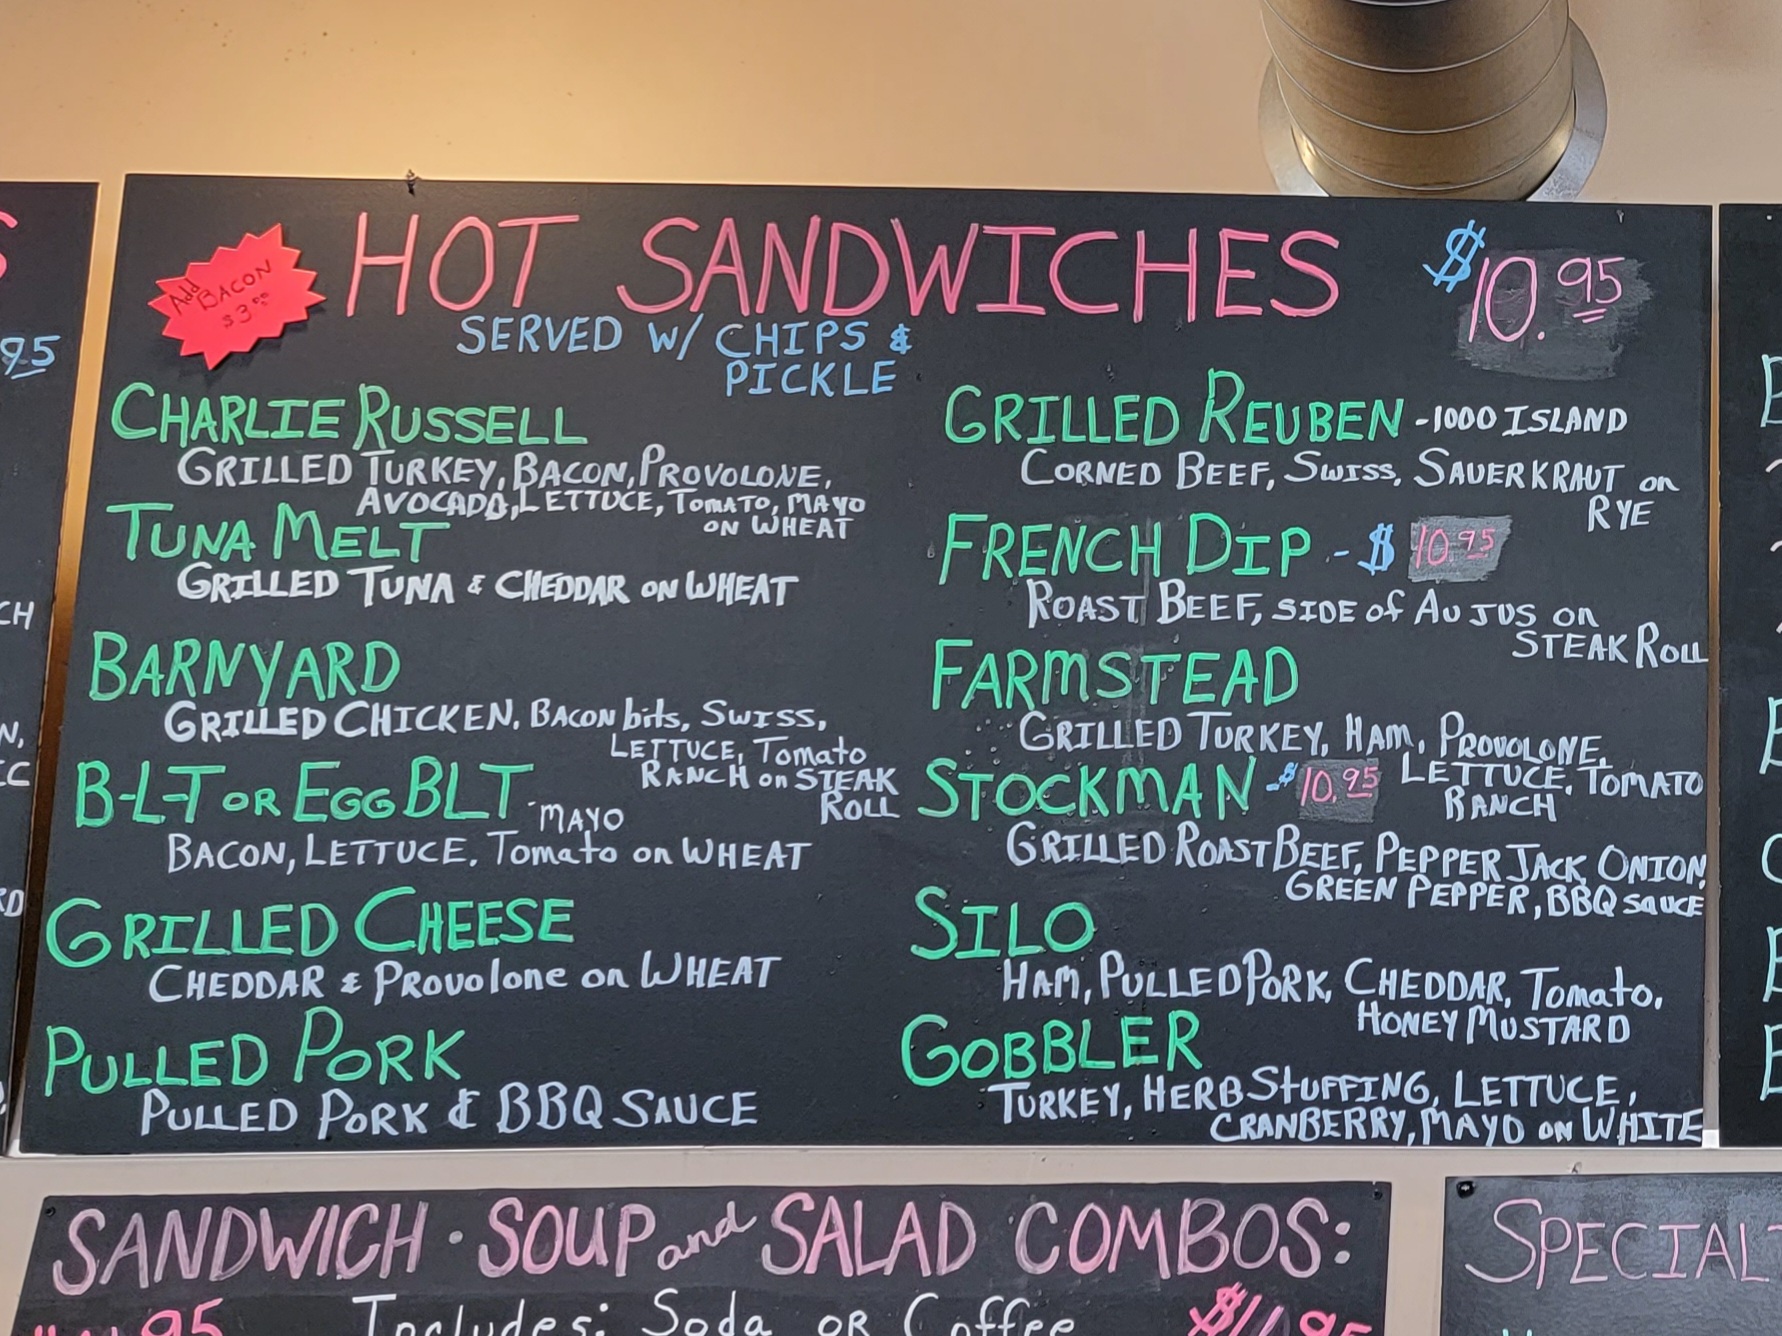 Add
BACON
$3.00
HOT SANDWICHES $10.95
SERVED W/ CHIPS &
PICKLE
CHARLIE RUSSELL
GRILLED TURKEY, BACON, PROVOLONE,
AVOCADO, LETTUCE, TOMATO, MAYO
ON WHEAT
TUNA MELT
GRILLED TUNA & CHEDDAR ON WHEAT
BARNYARD
GRILLED CHICKEN, BACON bits, SWISS,
LETTUCE, Tomato
RANCH on STEAK
ROLL
B-L-T OR EGG BLT -MAYO
BACON, LETTUCE, Tomato on WHEAT
GRILLED CHEESE
CHEDDAR & Provolone on WHEAT
PULLED PORK
PULLED PORK & BBQ SAUCE
GRILLED REUBEN -1000 ISLAND
CORNED BEEF, SWISS, SAUERKRAUT on
RYE
FRENCH DIP - $10.95
ROAST BEEF, SIDE of AU JUS on
STEAK ROLL
FARMSTEAD
GRILLED TURKEY, HAM, PROVOLONE,
LETTUCE, TOMATO
RANCH
STOCKMAN -$10.95
GRILLED ROAST BEEF, PEPPER JACK, ONION,
GREEN PEPPER, BBQ sauce
SILO
HAM, PULLED PORK, CHEDDAR, Tomato,
HONEY MUSTARD
GOBBLER
TURKEY, HERB STUFFING, LETTUCE,
CRANBERRY, MAYO ON WHITE
SANDWICH · SOUP and SALAD COMBOS:
Includes: Soda OR Coffee $11.95
SPECIAL